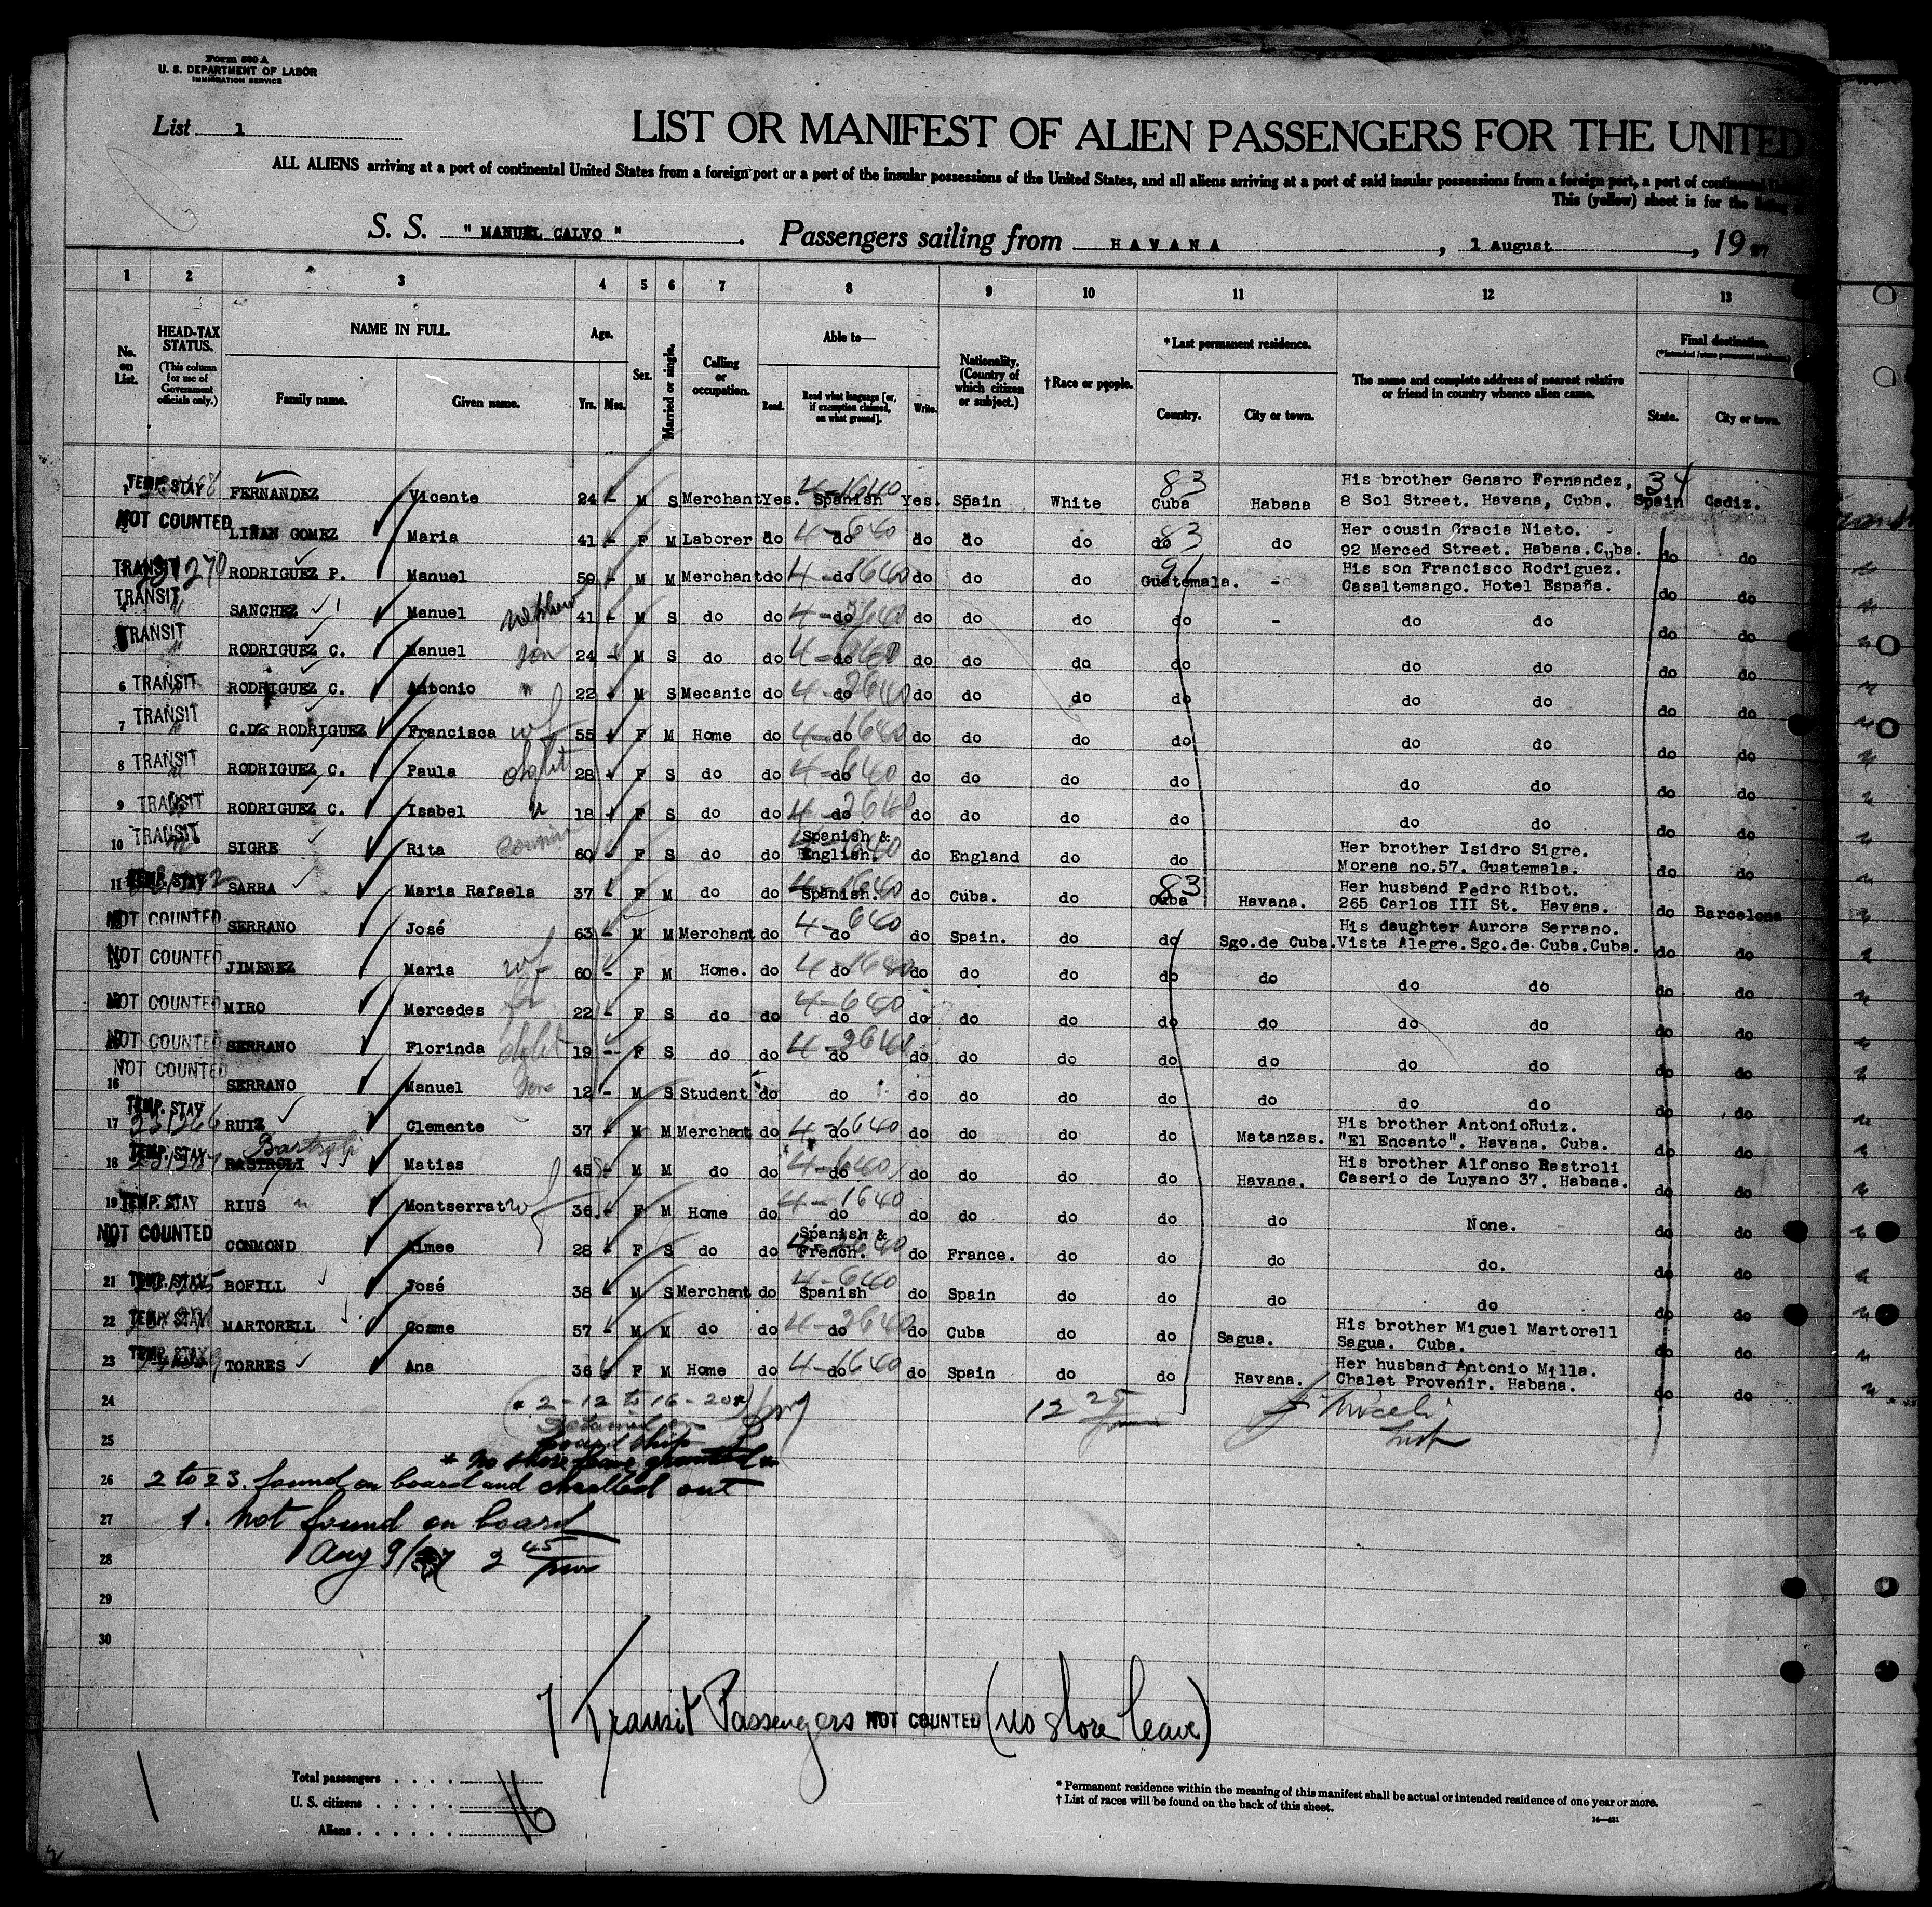 Form 500 A
U. S. DEPARTMENT OF LABOR
IMMIGRATION SERVICE
List 1
LIST OR MANIFEST OF ALIEN PASSENGERS FOR THE UNITED
ALL ALIENS arriving at a port of continental United States from a foreign port or a port of the insular possessions of the United States, and all aliens arriving at a port of said insular possessions from a foreign port, a port of continental
This (yellow) sheet is for the listing
S. S. " MANUEL CALVO " . Passengers sailing from HAVANA , 1 August , 19
1 2 3 4 5 6 7 8 9 10 11 12 13
No. on List.
HEAD-TAX STATUS. (This column for use of Government officials only.)
NAME IN FULL.
Family name. Given name.
Age. Yrs. Mos.
Sex.
Married or single.
Calling or occupation.
Able to—
Read. Read what language [or, if exemption claimed, on what ground]. Write.
Nationality. (Country of which citizen or subject.)
† Race or people.
* Last permanent residence.
Country. City or town.
The name and complete address of nearest relative or friend in country whence alien came.
Final destination. (* Intended future permanent residence)
State. City or town.
1 TEMP. STAY FERNANDEZ Vicente 24 - M S Merchant Yes. Spanish 4-1640 Yes. Spain White Cuba 83 Habana His brother Genaro Fernandez, 8 Sol Street. Havana, Cuba. Spain 34 Cadiz.
2 NOT COUNTED LIÑAN GOMEZ Maria 41 - F M Laborer do do 4-640 do do do do 83 do Her cousin Gracia Nieto. 92 Merced Street. Habana.Cuba. do do
TRANSIT RODRIGUEZ P. Manuel 59 - M M Merchant do do 4-1640 do do do Guatemala. 91 - His son Francisco Rodriguez. Casaltemango. Hotel España. do do
TRANSIT SANCHEZ Manuel nephew 41 - M S do do do 4-2640 do do do do - do do do do
TRANSIT RODRIGUEZ C. Manuel son 24 - M S do do do do do do do do do do do
6 TRANSIT RODRIGUEZ C. Antonio " 22 - M S Mecanic do do 4-2640 do do do do do do do do
7 TRANSIT C.DE RODRIGUEZ Francisca wf 55 - F M Home do do 4-1640 do do do do do do do do
8 TRANSIT RODRIGUEZ C. Paula dght 28 - F S do do do 4-640 do do do do do do do do
9 TRANSIT RODRIGUEZ C. Isabel " 18 - F S do do do 4-2640 do do do do do do do do
10 TRANSIT SIGRE Rita cousin 60 - F S do do Spanish & English. do England do do Her brother Isidro Sigre. Morena no.57. Guatemala. do do
11 TEMP. STAY SARRA Maria Rafaela 37 - F M do do Spanish. 4-1640 do Cuba. do Cuba 83 Havana. Her husband Pedro Ribot. 265 Carlos III St. Havana. do Barcelona
NOT COUNTED SERRANO José 63 - M M Merchant do do 4-640 do Spain. do do Sgo.de Cuba. His daughter Aurora Serrano. Vista Alegre.Sgo.de Cuba.Cuba. do do
NOT COUNTED JIMENEZ Maria wf 60 - F M Home. do do 4-1640 do do do do do do do do do
NOT COUNTED MIRO Mercedes 22 - F S do do do 4-640 do do do do do do do do do
NOT COUNTED SERRANO Florinda dght 19 - F S do do do 4-2640 do do do do do do do do do
16 NOT COUNTED SERRANO Manuel Son 12 - M S Student do do do do do do do do do do do
17 TEMP. STAY RUIZ Clemente 37 - M M Merchant do do 4-1640 do do do do Matanzas. His brother AntonioRuiz. "El Encanto". Havana. Cuba. do do
18 TEMP. STAY RASTROLI Bastroli Matias 45 - M M do do do 4-640 do do do do Havana. His brother Alfonso Rastroli Caserio de Luyano 37. Habana. do do
19 TEMP. STAY RIUS Montserrat wf 36 - F M Home do do 4-1640 do do do do do None. do do
NOT COUNTED CONMOND Aimee 28 - F S do do Spanish & French. do France. do do do do. do do
21 TEMP. STAY BOFILL José 38 - M S Merchant do Spanish 4-640 do Spain do do do do do do
22 TEMP. STAY MARTORELL Cosme 57 - M M do do do 4-2640 do Cuba do do Sagua. His brother Miguel Martorell Sagua. Cuba. do do
23 TEMP. STAY TORRES Ana 36 - F M Home do do 4-1640 do Spain do do Havana. Her husband Antonio Milla. Chalet Provenir. Habana. do do
24 * 2-12 to 16-20* 12 25
25 board ship
* No shore leave granted *
26 2 to 23. found on board and checked out
27 1. not found on board
28 Aug 9/27 2 45 pm
29
30
7 Transit Passengers NOT COUNTED (no shore leave)
Total passengers . . . .
U. S. citizens . . . . .
Aliens . . . . . .
16
* Permanent residence within the meaning of this manifest shall be actual or intended residence of one year or more.
† List of races will be found on the back of this sheet.